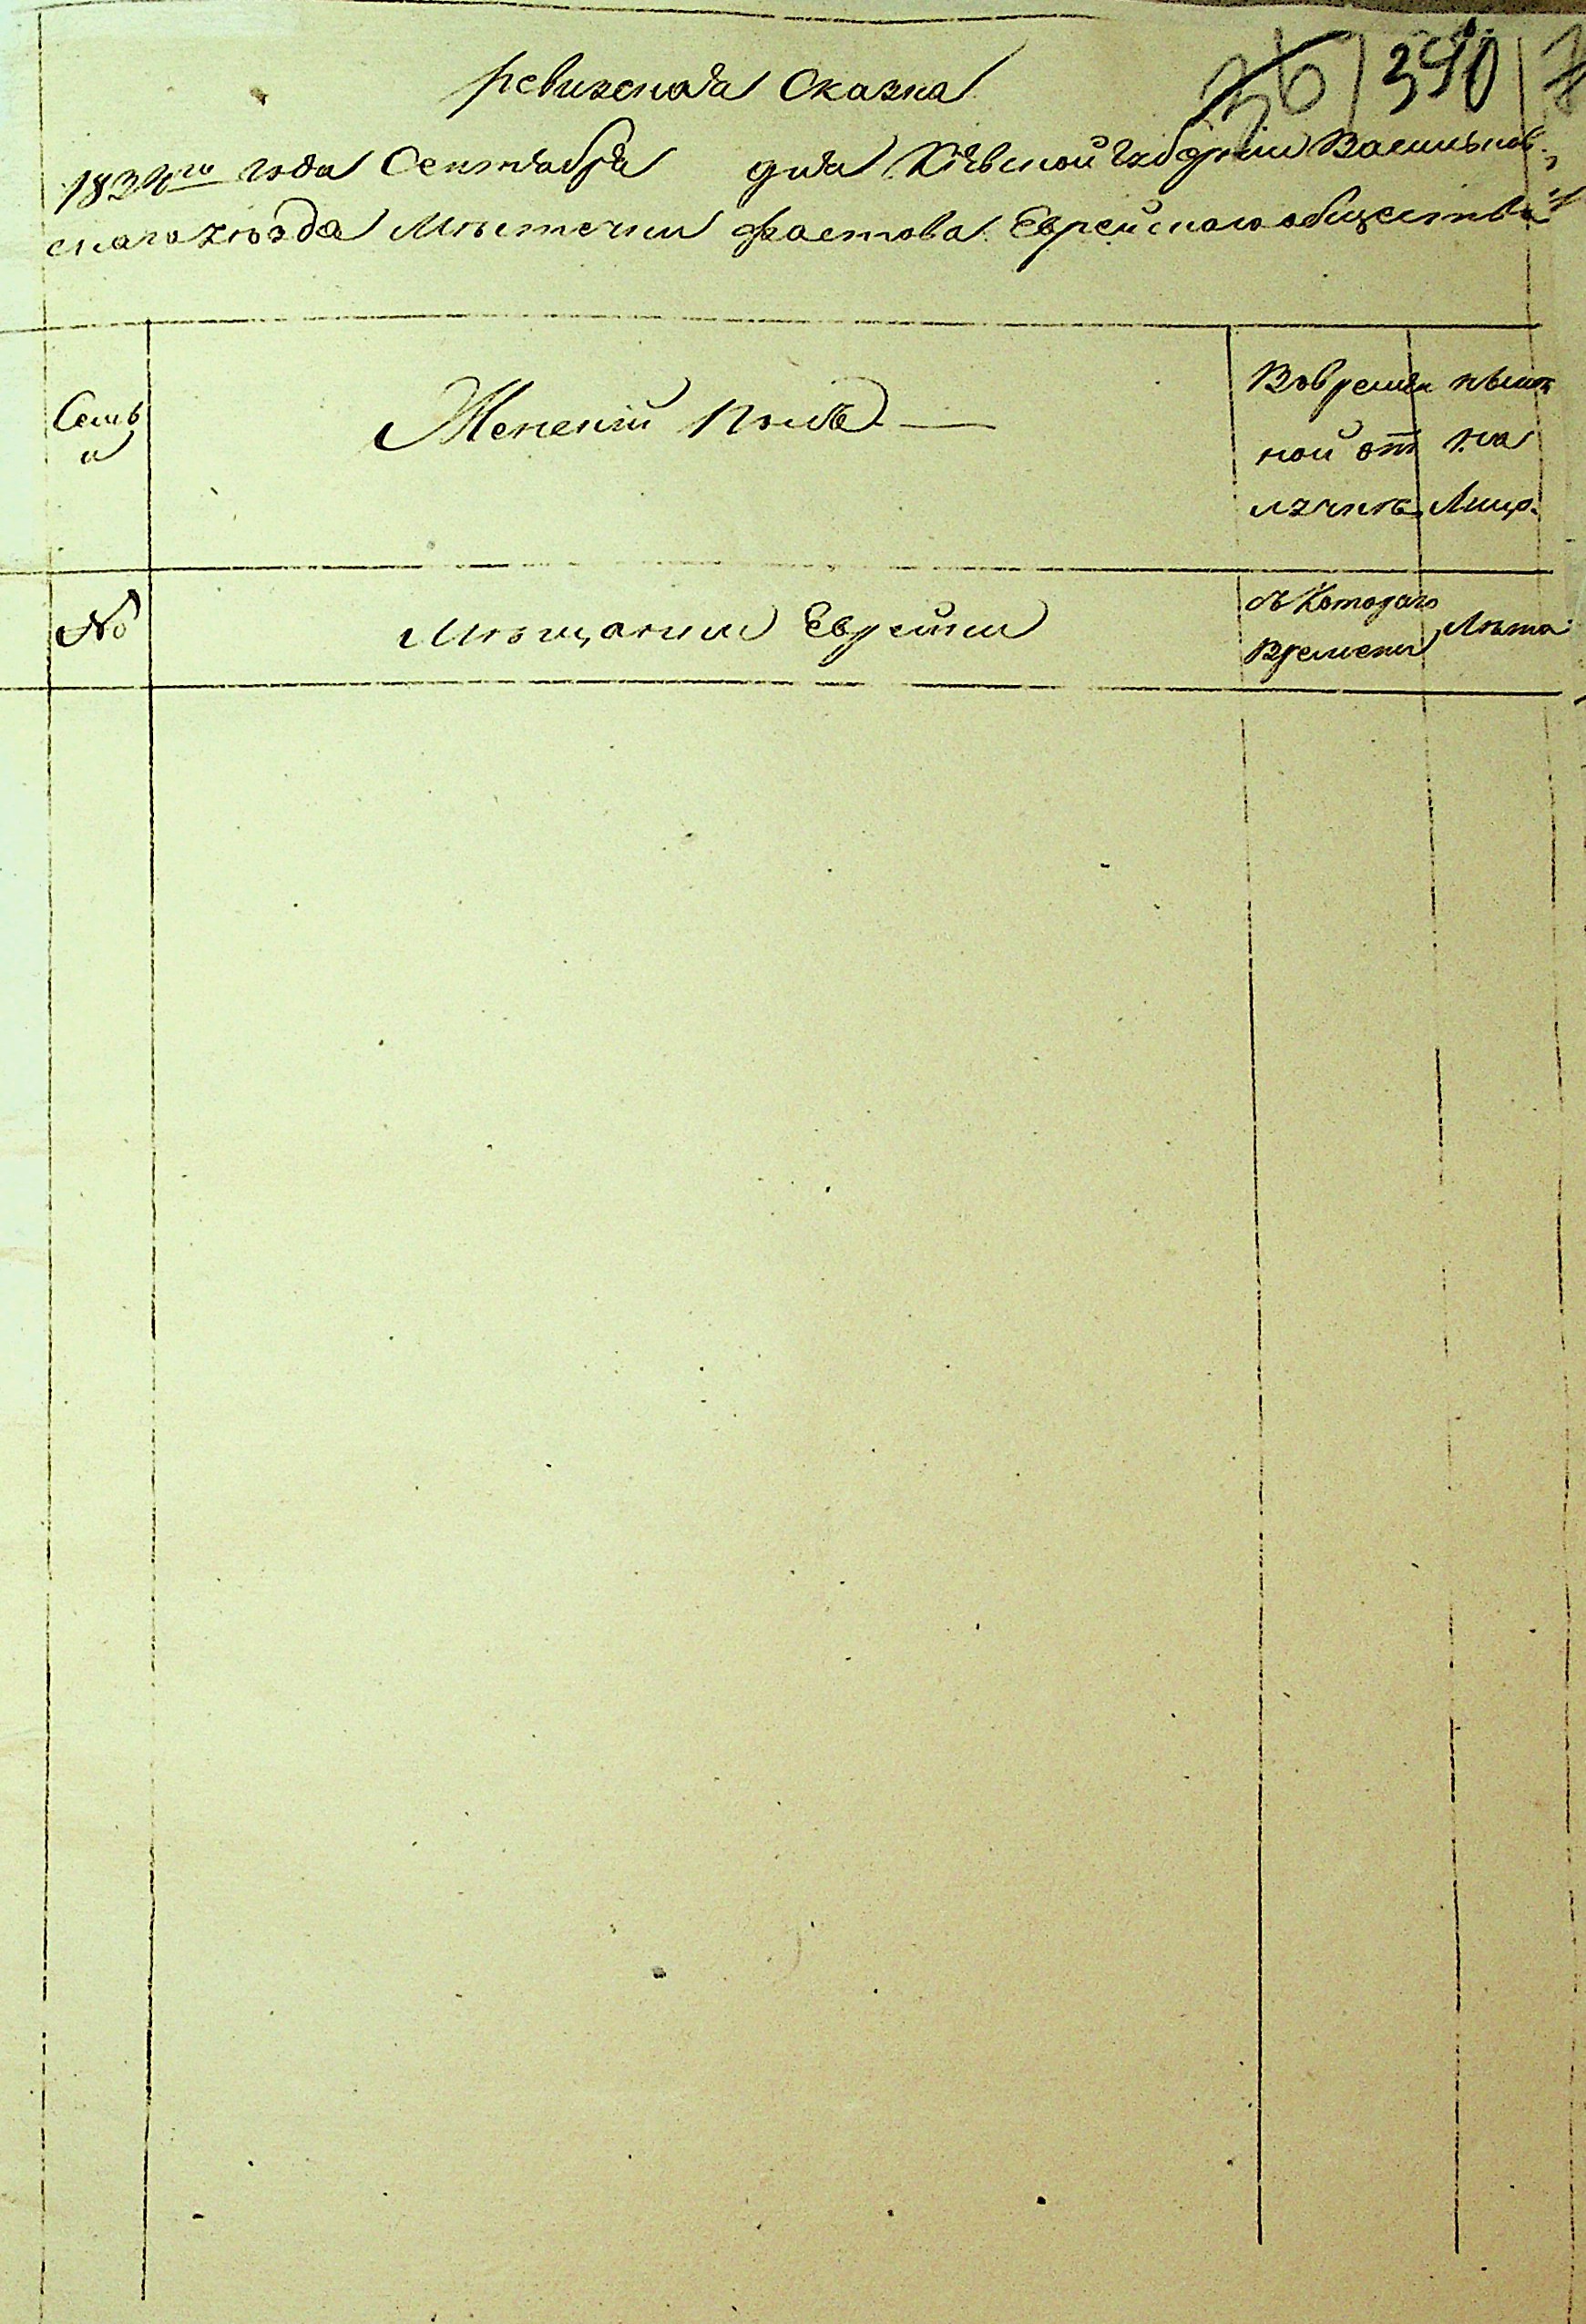 390
ревизская Сказка
1834го года Сентября дня Кіевской Губерніи Васильков-
скаго уѣзда Мѣстечки Фастова Еврейскаго общества
Семьи
Женскій полъ
Вовремен-
ной от-
лучкѣ
нынѣ
на
Лицо.
№
Мѣщанки Еврейки
съ Котораго
Времени
Лѣта